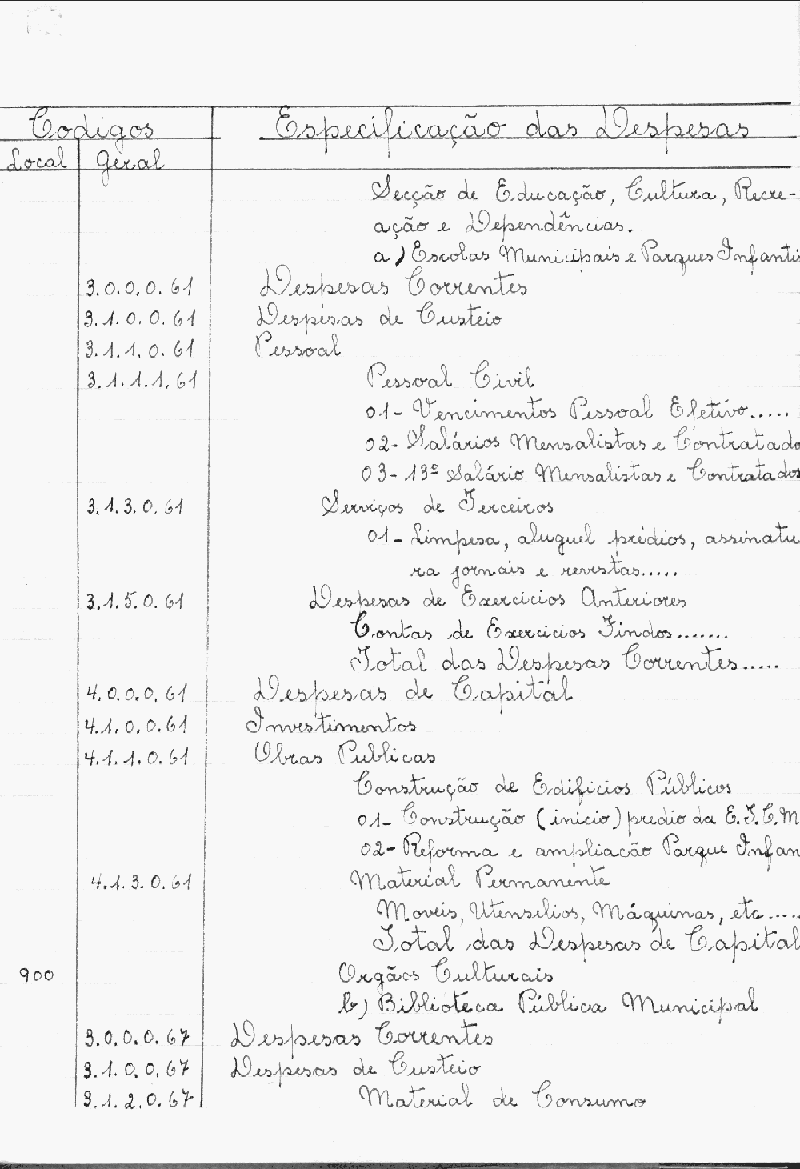 Codigos Especificação das Despesas
Local Geral
Secção de Educação, Cultura, Recre-
ação e Dependências.
a) Escolas Municipais e Parques Infantis
3.0.0.0.61 Despesas Correntes
3.1.0.0.61 Despesas de Custeio
3.1.1.0.61 Pessoal
3.1.1.1.61 Pessoal Civil
01- Vencimentos Pessoal Efetivo.....
02- Salários Mensalistas e Contratado
03- 13º Salário Mensalistas e Contratados
3.1.3.0.61 Serviços de Terceiros
01- Limpesa, aluguel prédios, assinatu
ra jornais e revistas.....
3.1.5.0.61 Despesas de Exercicios Anteriores
Contas de Exercicios Findos.......
Total das Despesas Correntes.....
4.0.0.0.61 Despesas de Capital
4.1.0.0.61 Investimentos
4.1.1.0.61 Obras Publicas
Construção de Edificios Públicos
01- Construção (inicio) predio da E.T.C.M
02- Reforma e ampliacão Parque Infan
4.1.3.0.61 Material Permanente
Moveis, Utensilios, Máquinas, etc.....
Total das Despesas de Capital
900 Orgãos Culturais
b) Biblioteca Pública Municipal
3.0.0.0.67 Despesas Correntes
3.1.0.0.67 Despesas de Custeio
3.1.2.0.67 Material de Consumo